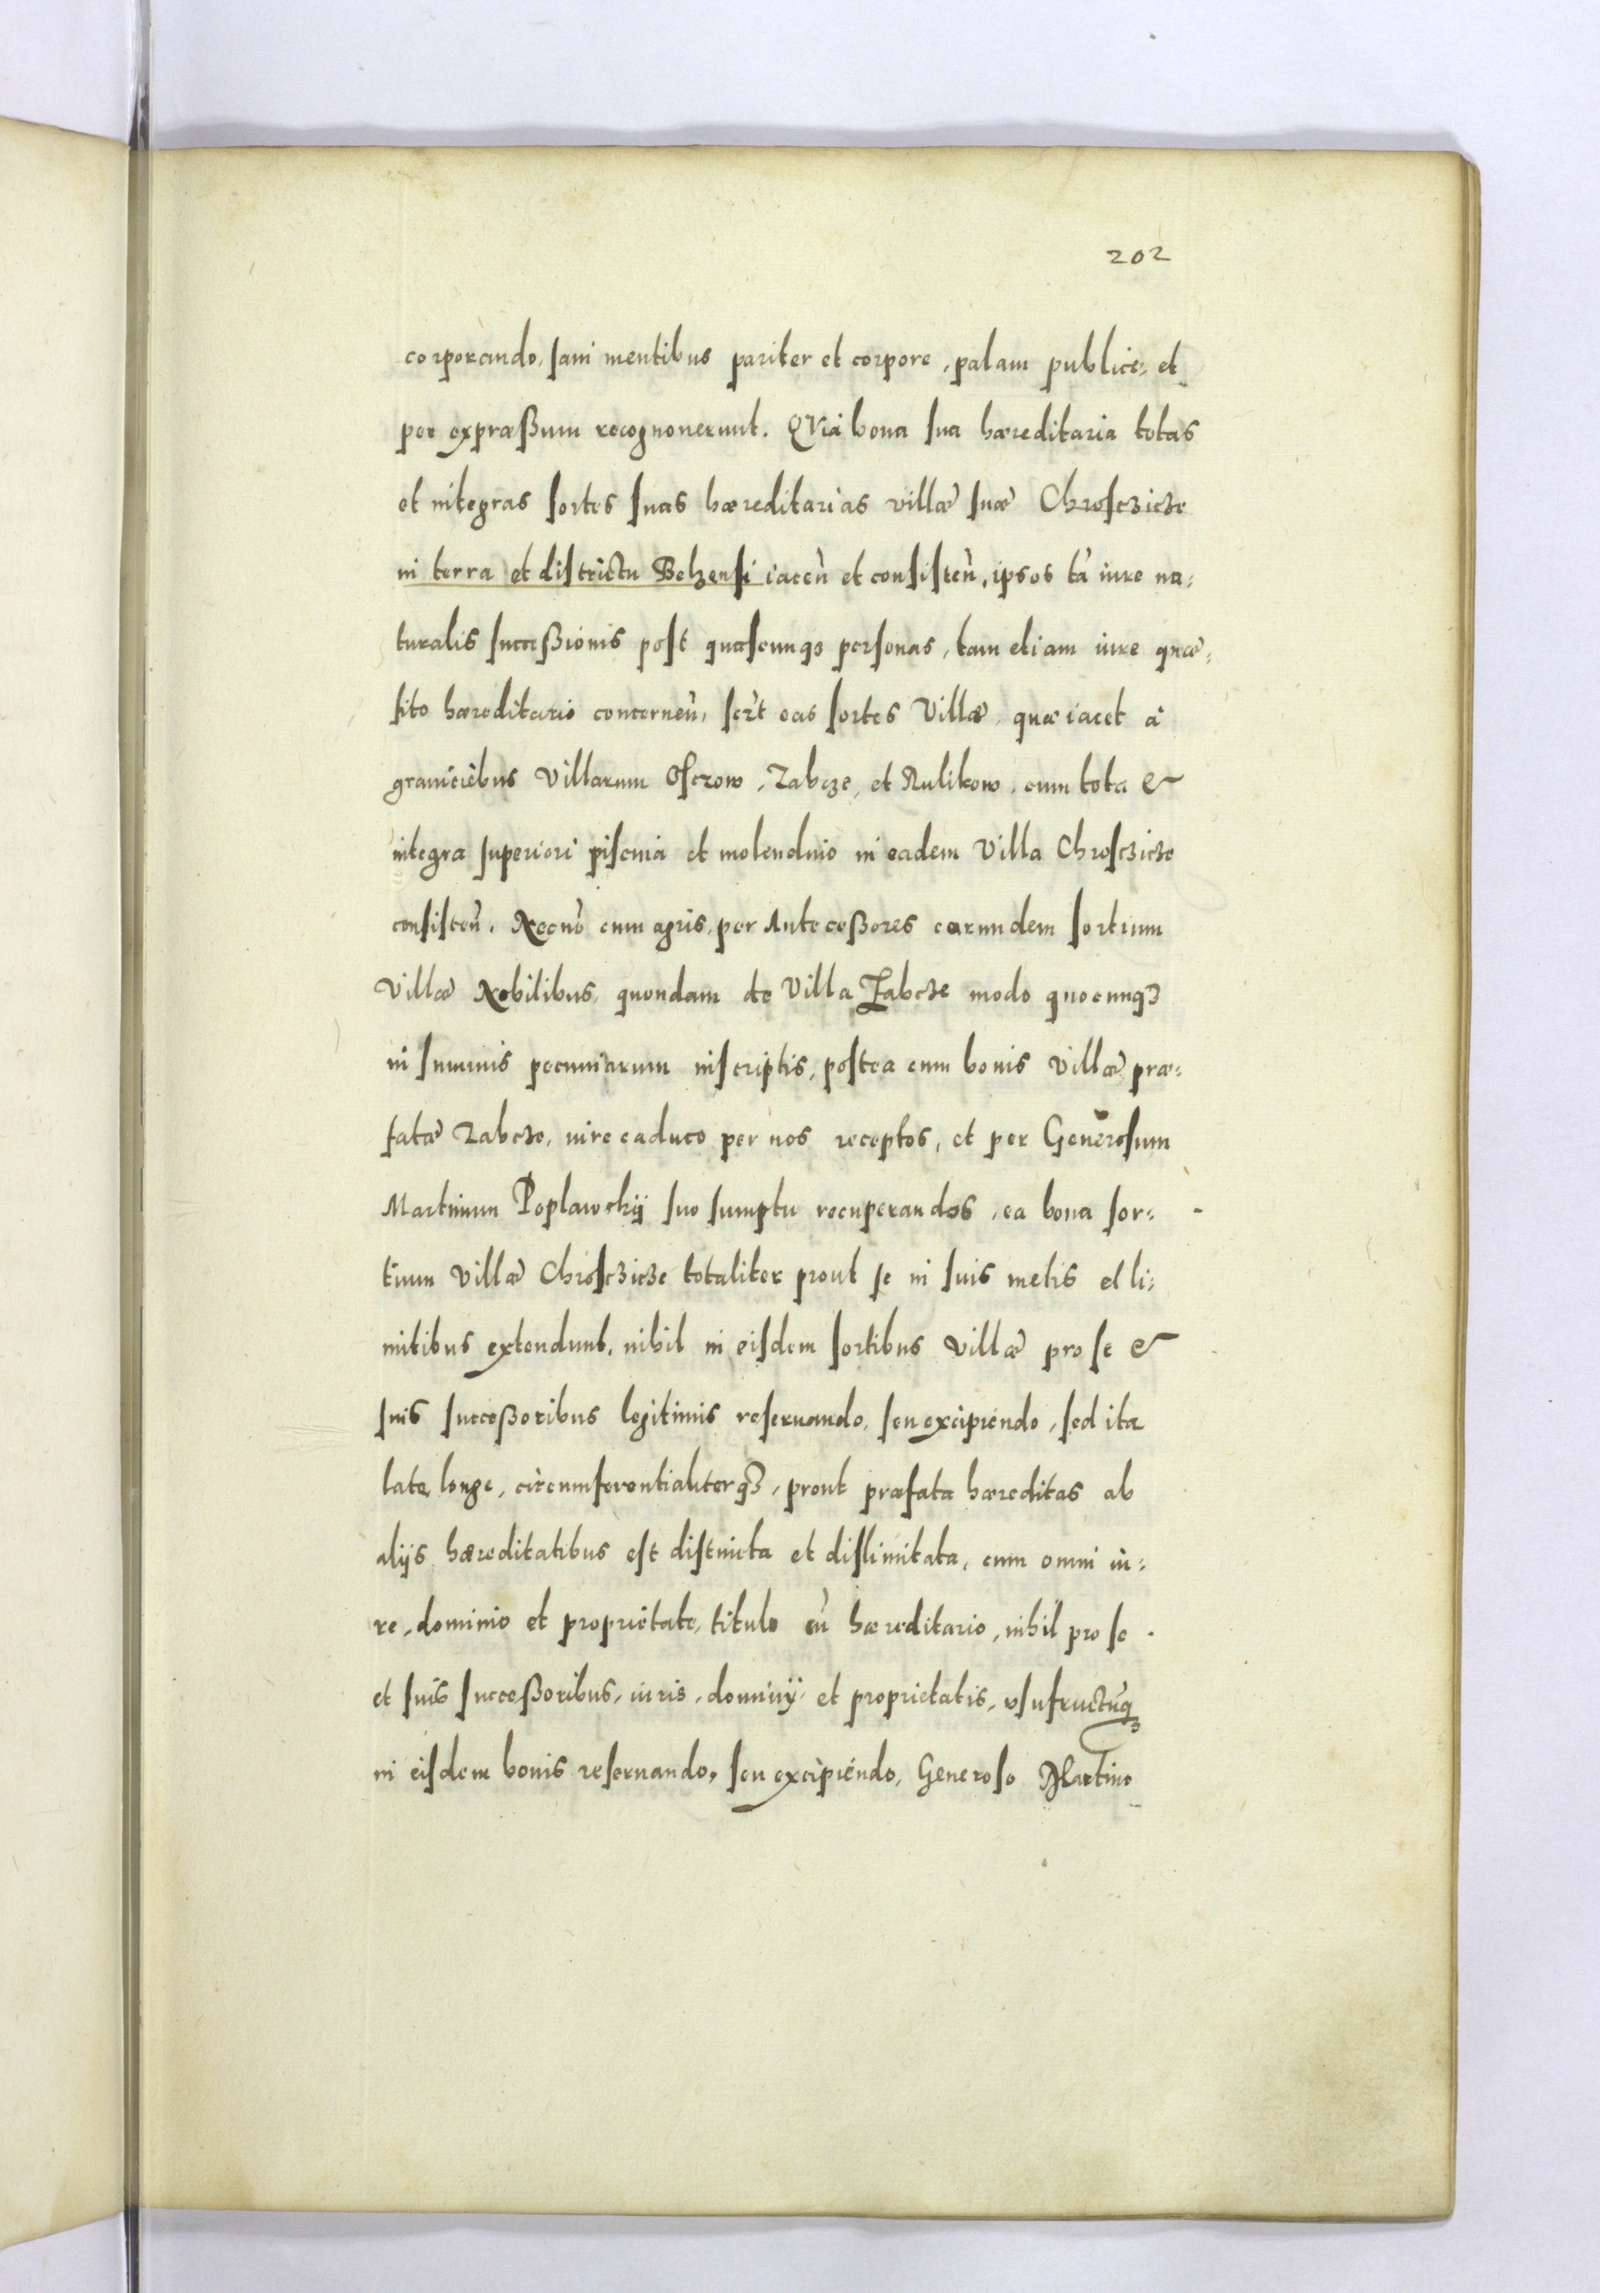 202
corporando, sani mentibus pariter et corpore, palam publice, et
per expræßum recognouerunt. QVia bona sua hæreditaria totas
et integras sortes suas hæreditarias villæ suæ Chrosczicze
in terra et districtu Belzensi iaceñ et consisteñ, ipsos tã iure na-
turalis succeßionis post quascunqꝫ personas, tam etiam iure quæ-
sito hæreditario concerneñ, scr̃t eas sortes Villæ, quæ iacet à
graniciebus Villarum Oserow, Zabcze, et Rulikow, cum tota &
integra superiori piscina et molendino in eadem Villa Chrosczicze
consisteñ. Necnõ cum agris, per Anteceßores earundem sortium
Villæ Nobilibus, quondam de Villa Zabcze modo quocunqꝫ
in summis pecuniarum inscriptis, postea cum bonis Villæ præ-
fatæ Zabcze, iure caduco per nos receptos, et per Generosum
Martinum Poplawskÿ suo sumptu recuperandos, ea bona sor-
tium Villæ Chrosczicze totaliter prout se in suis metis et li-
mitibus extendunt, nihil in eisdem sortibus Villæ pro se &
suis succeßoribus legitimis reseruando, seu excipiendo, sed ita
late, longe, circumferentialiterqꝫ, prout præfata hæreditas ab
alijs hæreditatibus est distincta et dislimitata, cum omni iu-
re, dominio et proprietate, titulo cũ hæreditario, nihil pro se
et suis succeßoribus, iuris, dominÿ et proprietatis, vsufructusqꝫ
in eisdem bonis reseruando, seu excipiendo, Generoso Martino